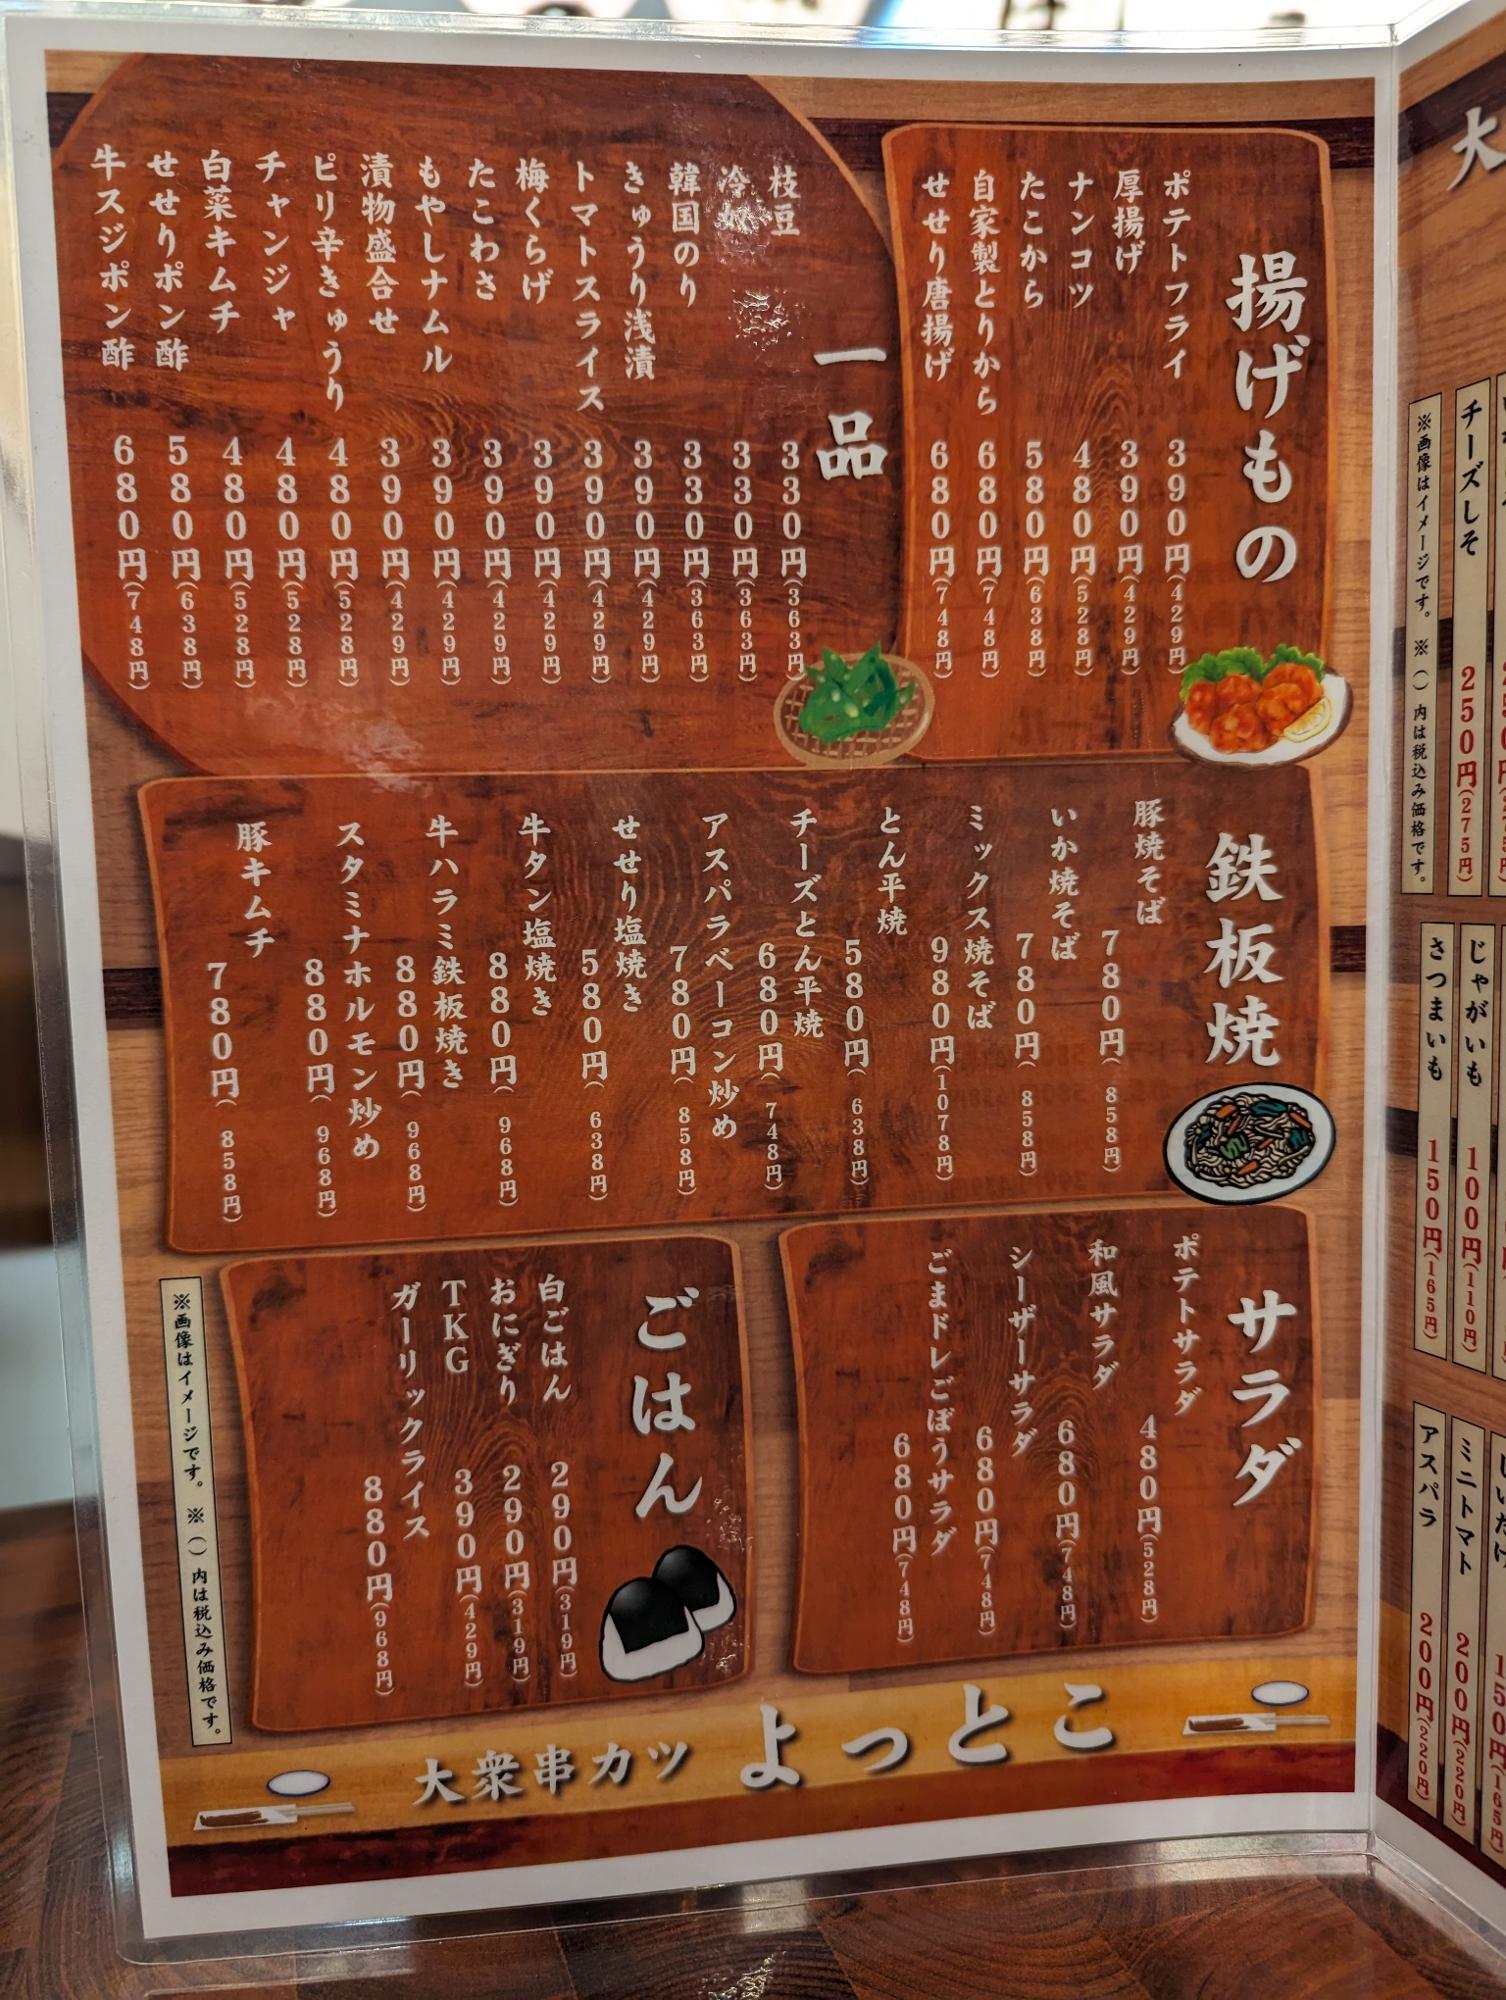 揚げもの
ポテトフライ 390円(429円)
厚揚げ 390円(429円)
ナンコツ 480円(528円)
たこから 580円(638円)
自家製とりから 680円(748円)
せせり唐揚げ 680円(748円)
一品
枝豆 330円(363円)
冷奴 330円(363円)
韓国のり 330円(363円)
きゅうり浅漬 390円(429円)
トマトスライス 390円(429円)
梅くらげ 390円(429円)
たこわさ 390円(429円)
もやしナムル 390円(429円)
漬物盛合せ 390円(429円)
ピリ辛きゅうり 480円(528円)
チャンジャ 480円(528円)
白菜キムチ 480円(528円)
せせりポン酢 580円(638円)
牛スジポン酢 680円(748円)
鉄板焼
豚焼そば 780円(858円)
いか焼そば 780円(858円)
ミックス焼そば 980円(1078円)
とん平焼 580円(638円)
チーズとん平焼 680円(748円)
アスパラベーコン炒め 780円(858円)
せせり塩焼き 580円(638円)
牛タン塩焼き 880円(968円)
牛ハラミ鉄板焼き 880円(968円)
スタミナホルモン炒め 880円(968円)
豚キムチ 780円(858円)
サラダ
ポテトサラダ 480円(528円)
和風サラダ 680円(748円)
シーザーサラダ 680円(748円)
ごまドレごぼうサラダ 680円(748円)
ごはん
白ごはん 290円(319円)
おにぎり 290円(319円)
TKG 390円(429円)
ガーリックライス 880円(968円)
※画像はイメージです。 ※()内は税込み価格です。
大衆串カツ よっとこ
大
チーズしそ 250円(275円)
※画像はイメージです。 ※()内は税込み価格です。
じゃがいも 100円(110円)
さつまいも 150円(165円)
ミニトマト 200円(220円)
アスパラ 200円(220円)